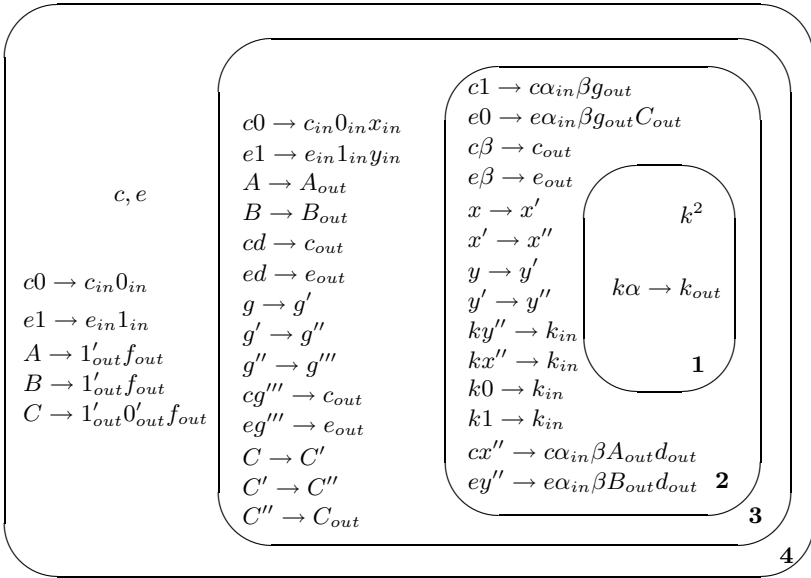 c, e
c0 → c_{in}0_{in}
e1 → e_{in}1_{in}
A → 1'_{out}f_{out}
B → 1'_{out}f_{out}
C → 1'_{out}0'_{out}f_{out}
c0 → c_{in}0_{in}x_{in}
e1 → e_{in}1_{in}y_{in}
A → A_{out}
B → B_{out}
cd → c_{out}
ed → e_{out}
g → g'
g' → g''
g'' → g'''
cg''' → c_{out}
eg''' → e_{out}
C → C'
C' → C''
C'' → C_{out}
c1 → cα_{in}βg_{out}
e0 → eα_{in}βg_{out}C_{out}
cβ → c_{out}
eβ → e_{out}
x → x'
x' → x''
y → y'
y' → y''
ky'' → k_{in}
kx'' → k_{in}
k0 → k_{in}
k1 → k_{in}
cx'' → cα_{in}βA_{out}d_{out}
ey'' → eα_{in}βB_{out}d_{out}
k^2
kα → k_{out}
1
2
3
4